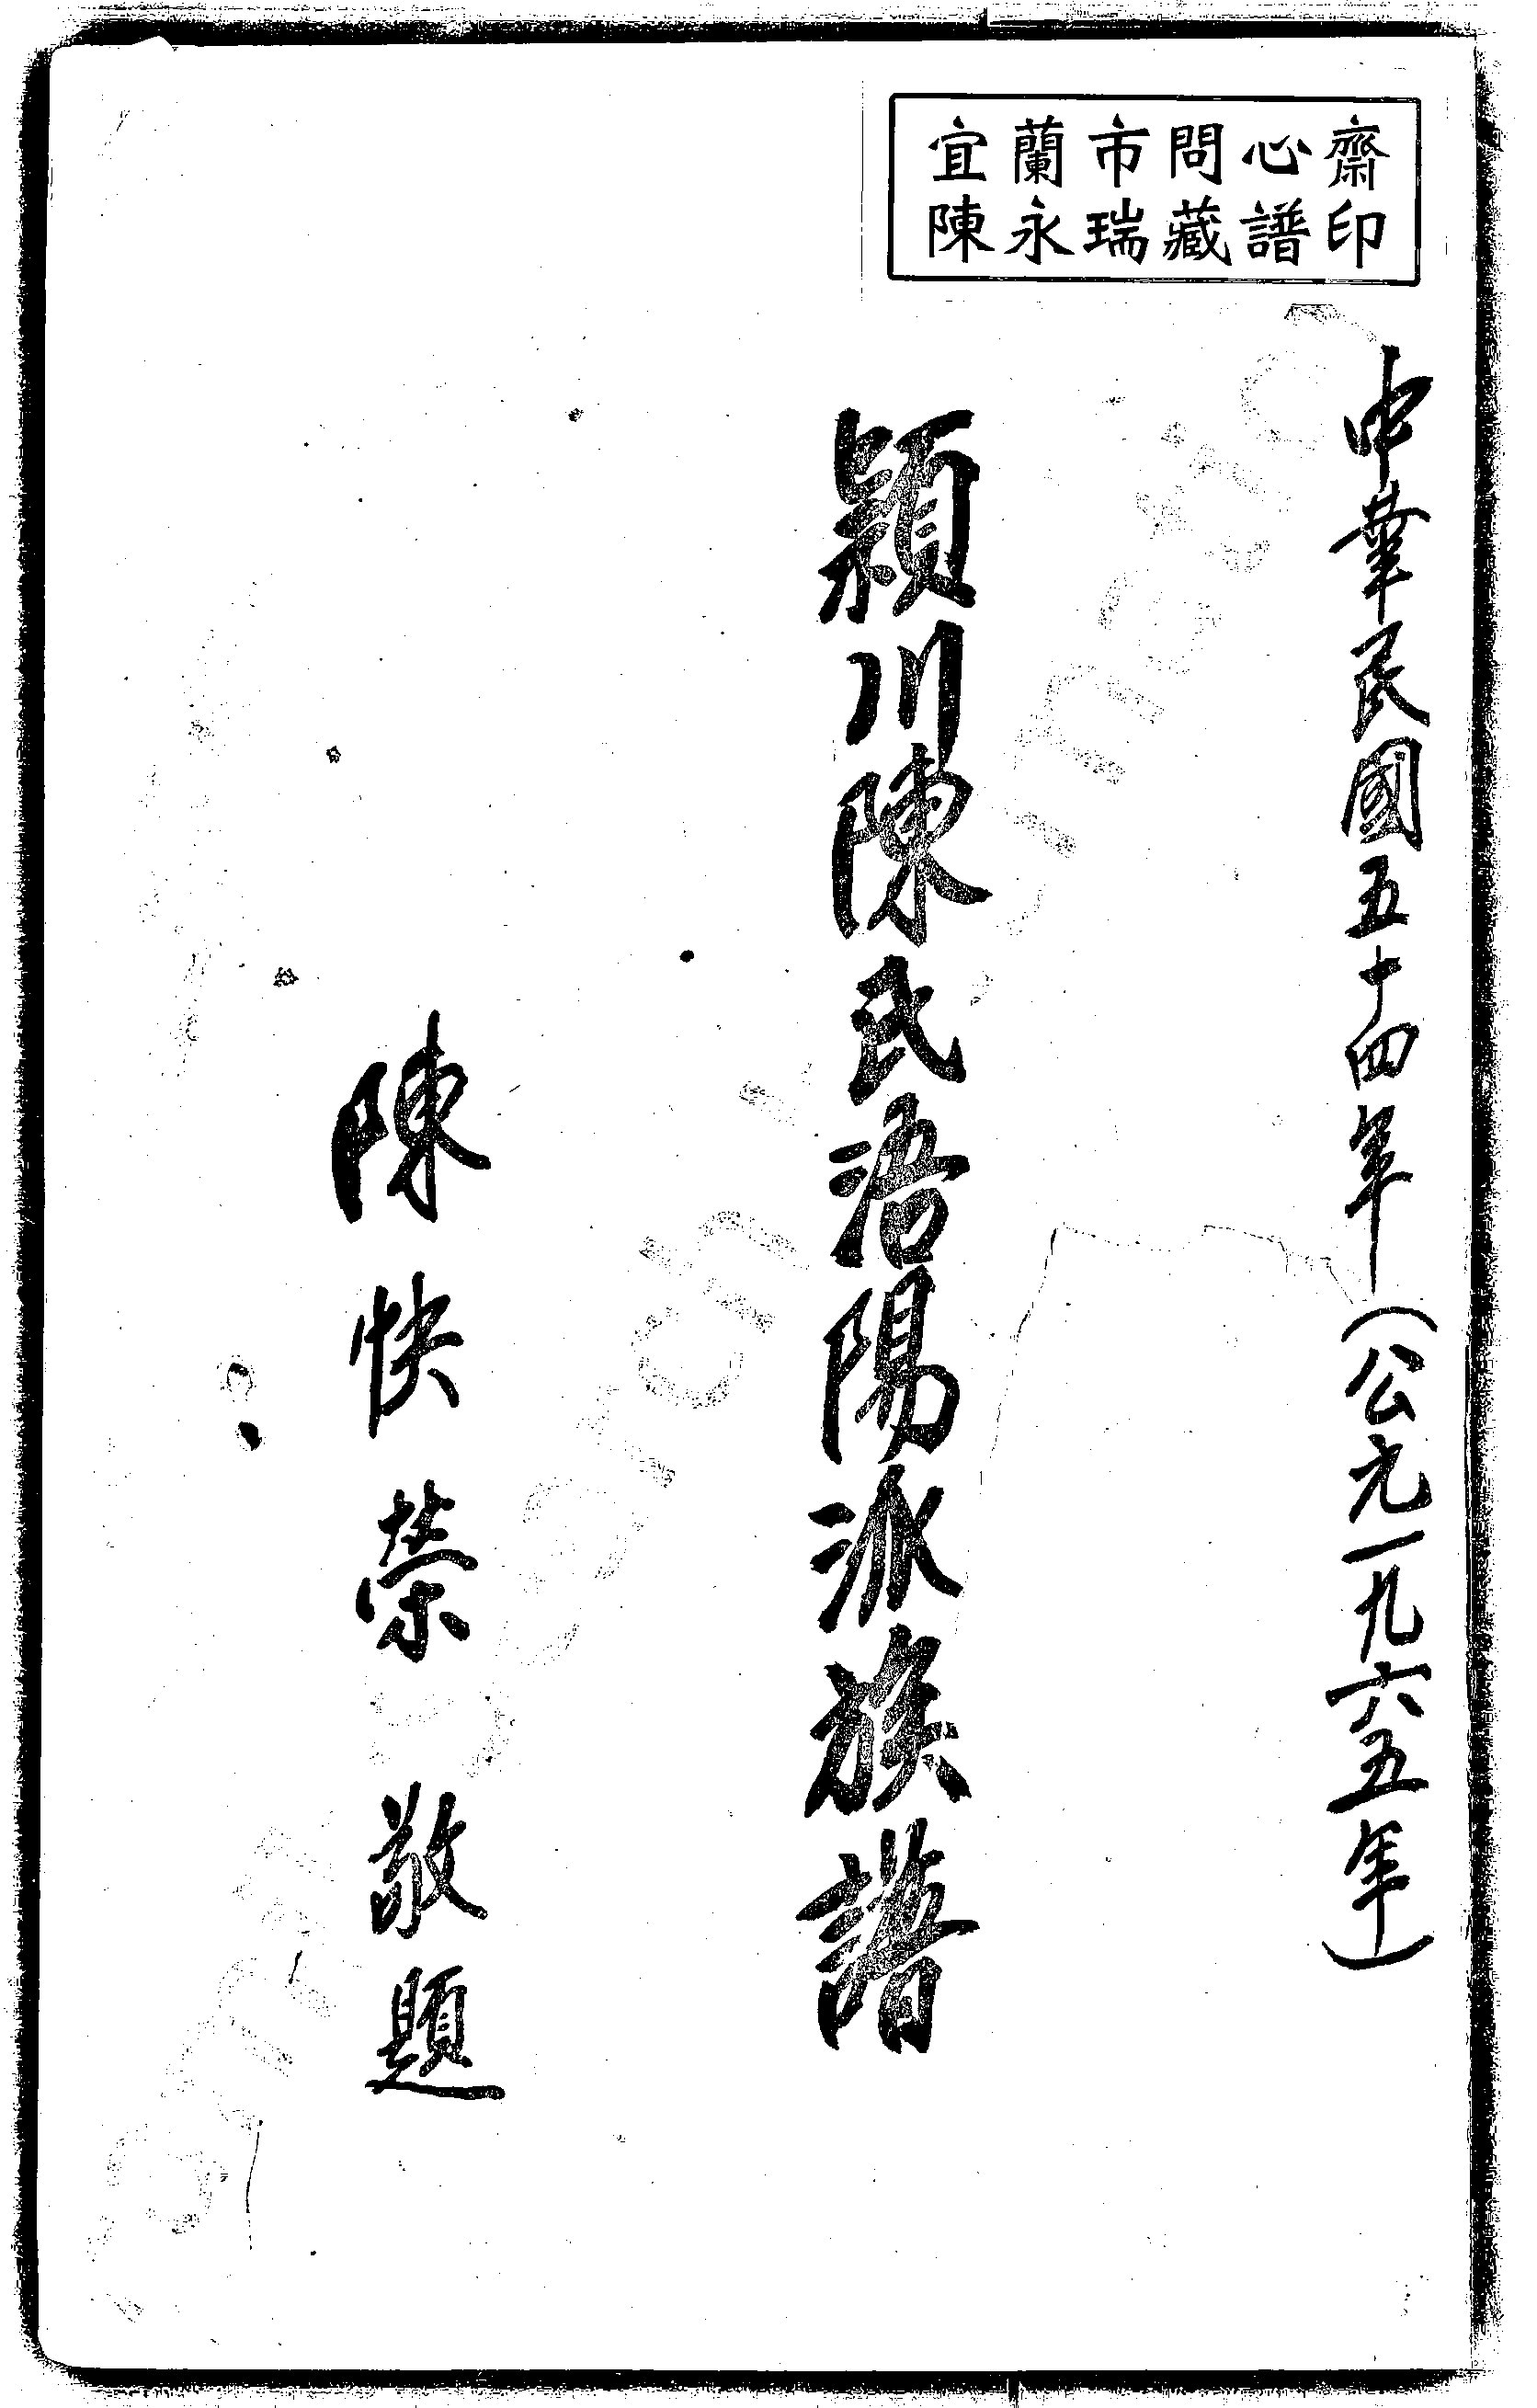 宜蘭市問心齋
陳永瑞藏譜印
中華民國五十四年(公元一九六五年)
潁川陳氏浯陽派族譜
陳快榮敬題